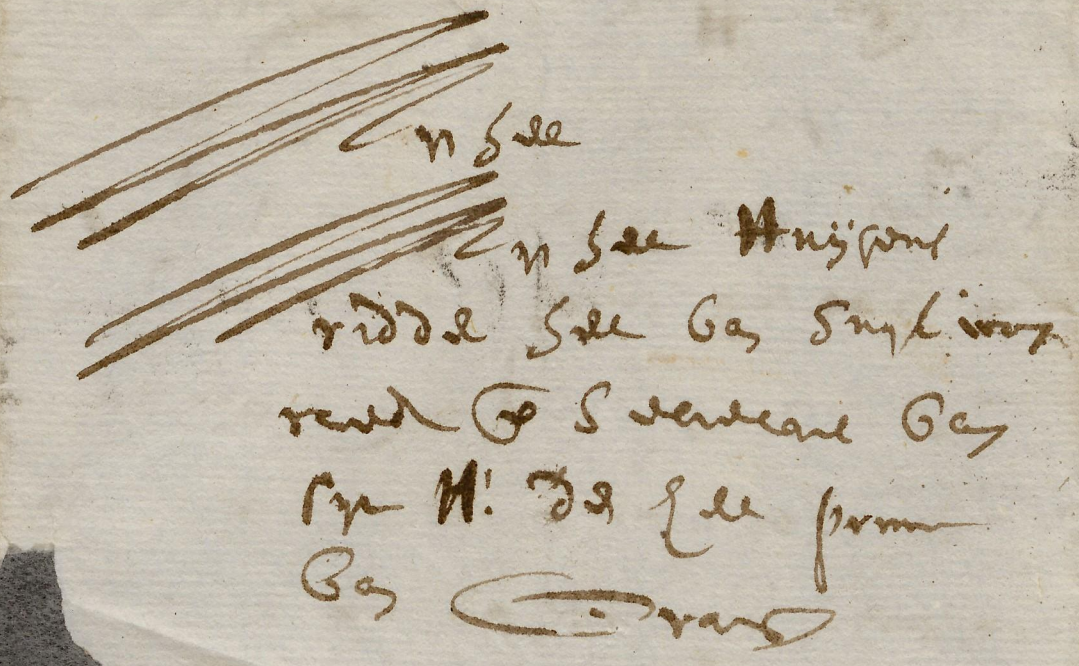 Mijn heer
Mijn heer Huijgens
ridder heer van Suylicom
raedt en Secretaris van
syn H. de heer prins
van Orang